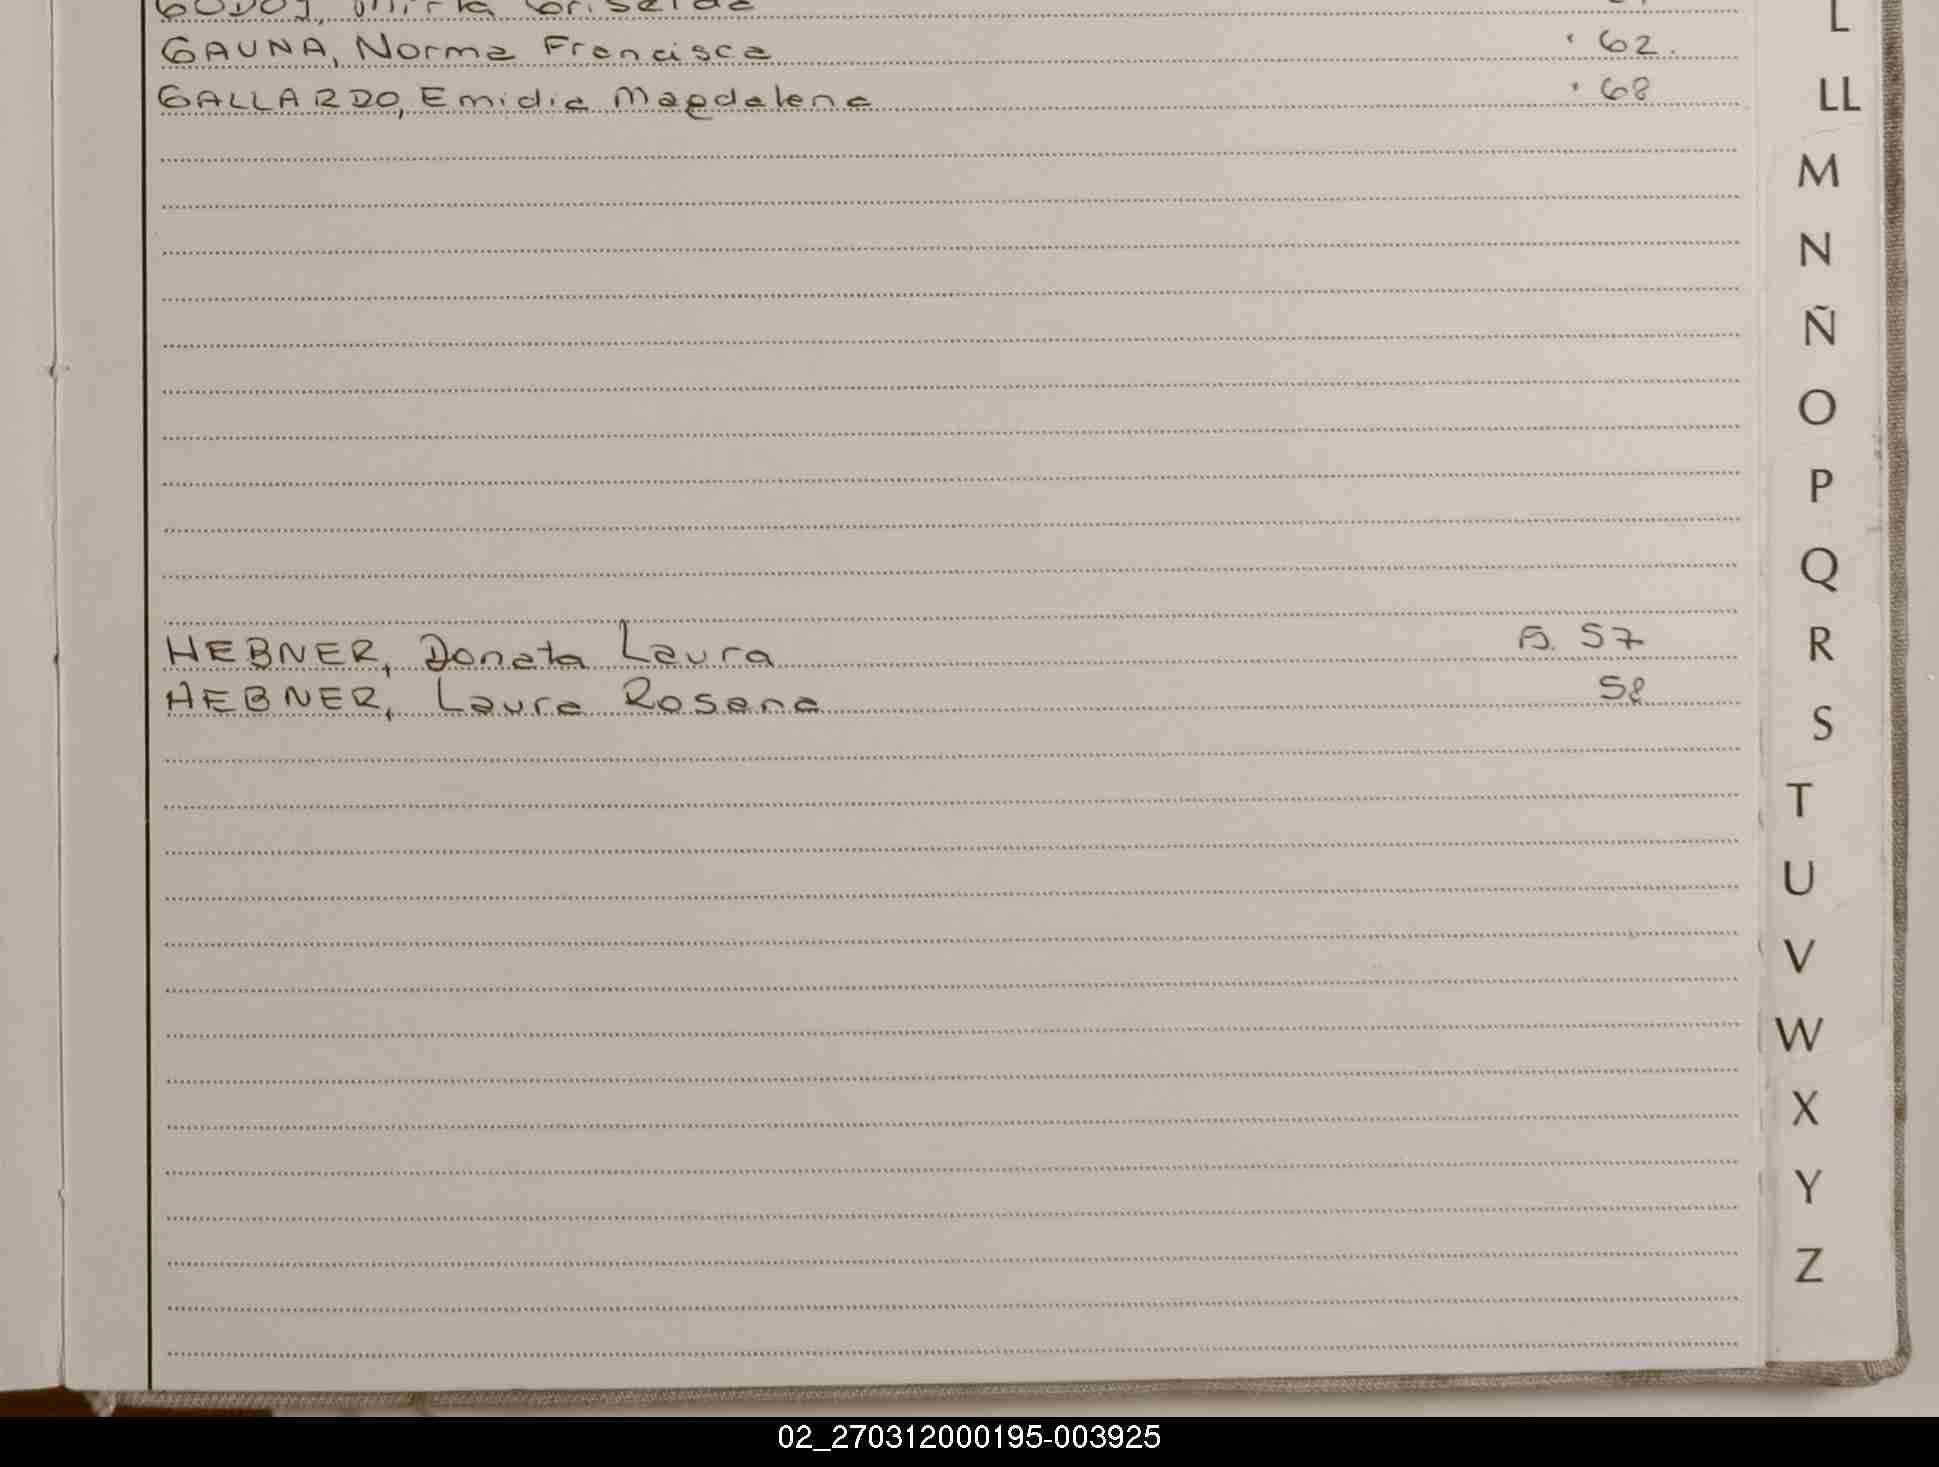 GODOY, Mirta Griselda
GAUNA, Norma Francisca 62.
GALLARDO, Emidia Magdalena 68
HEBNER, Donata Laura 57
HEBNER, Laura Rosana 58
L
LL
M
N
Ñ
O
P
Q
R
S
T
U
V
W
X
Y
Z
02_270312000195-003925